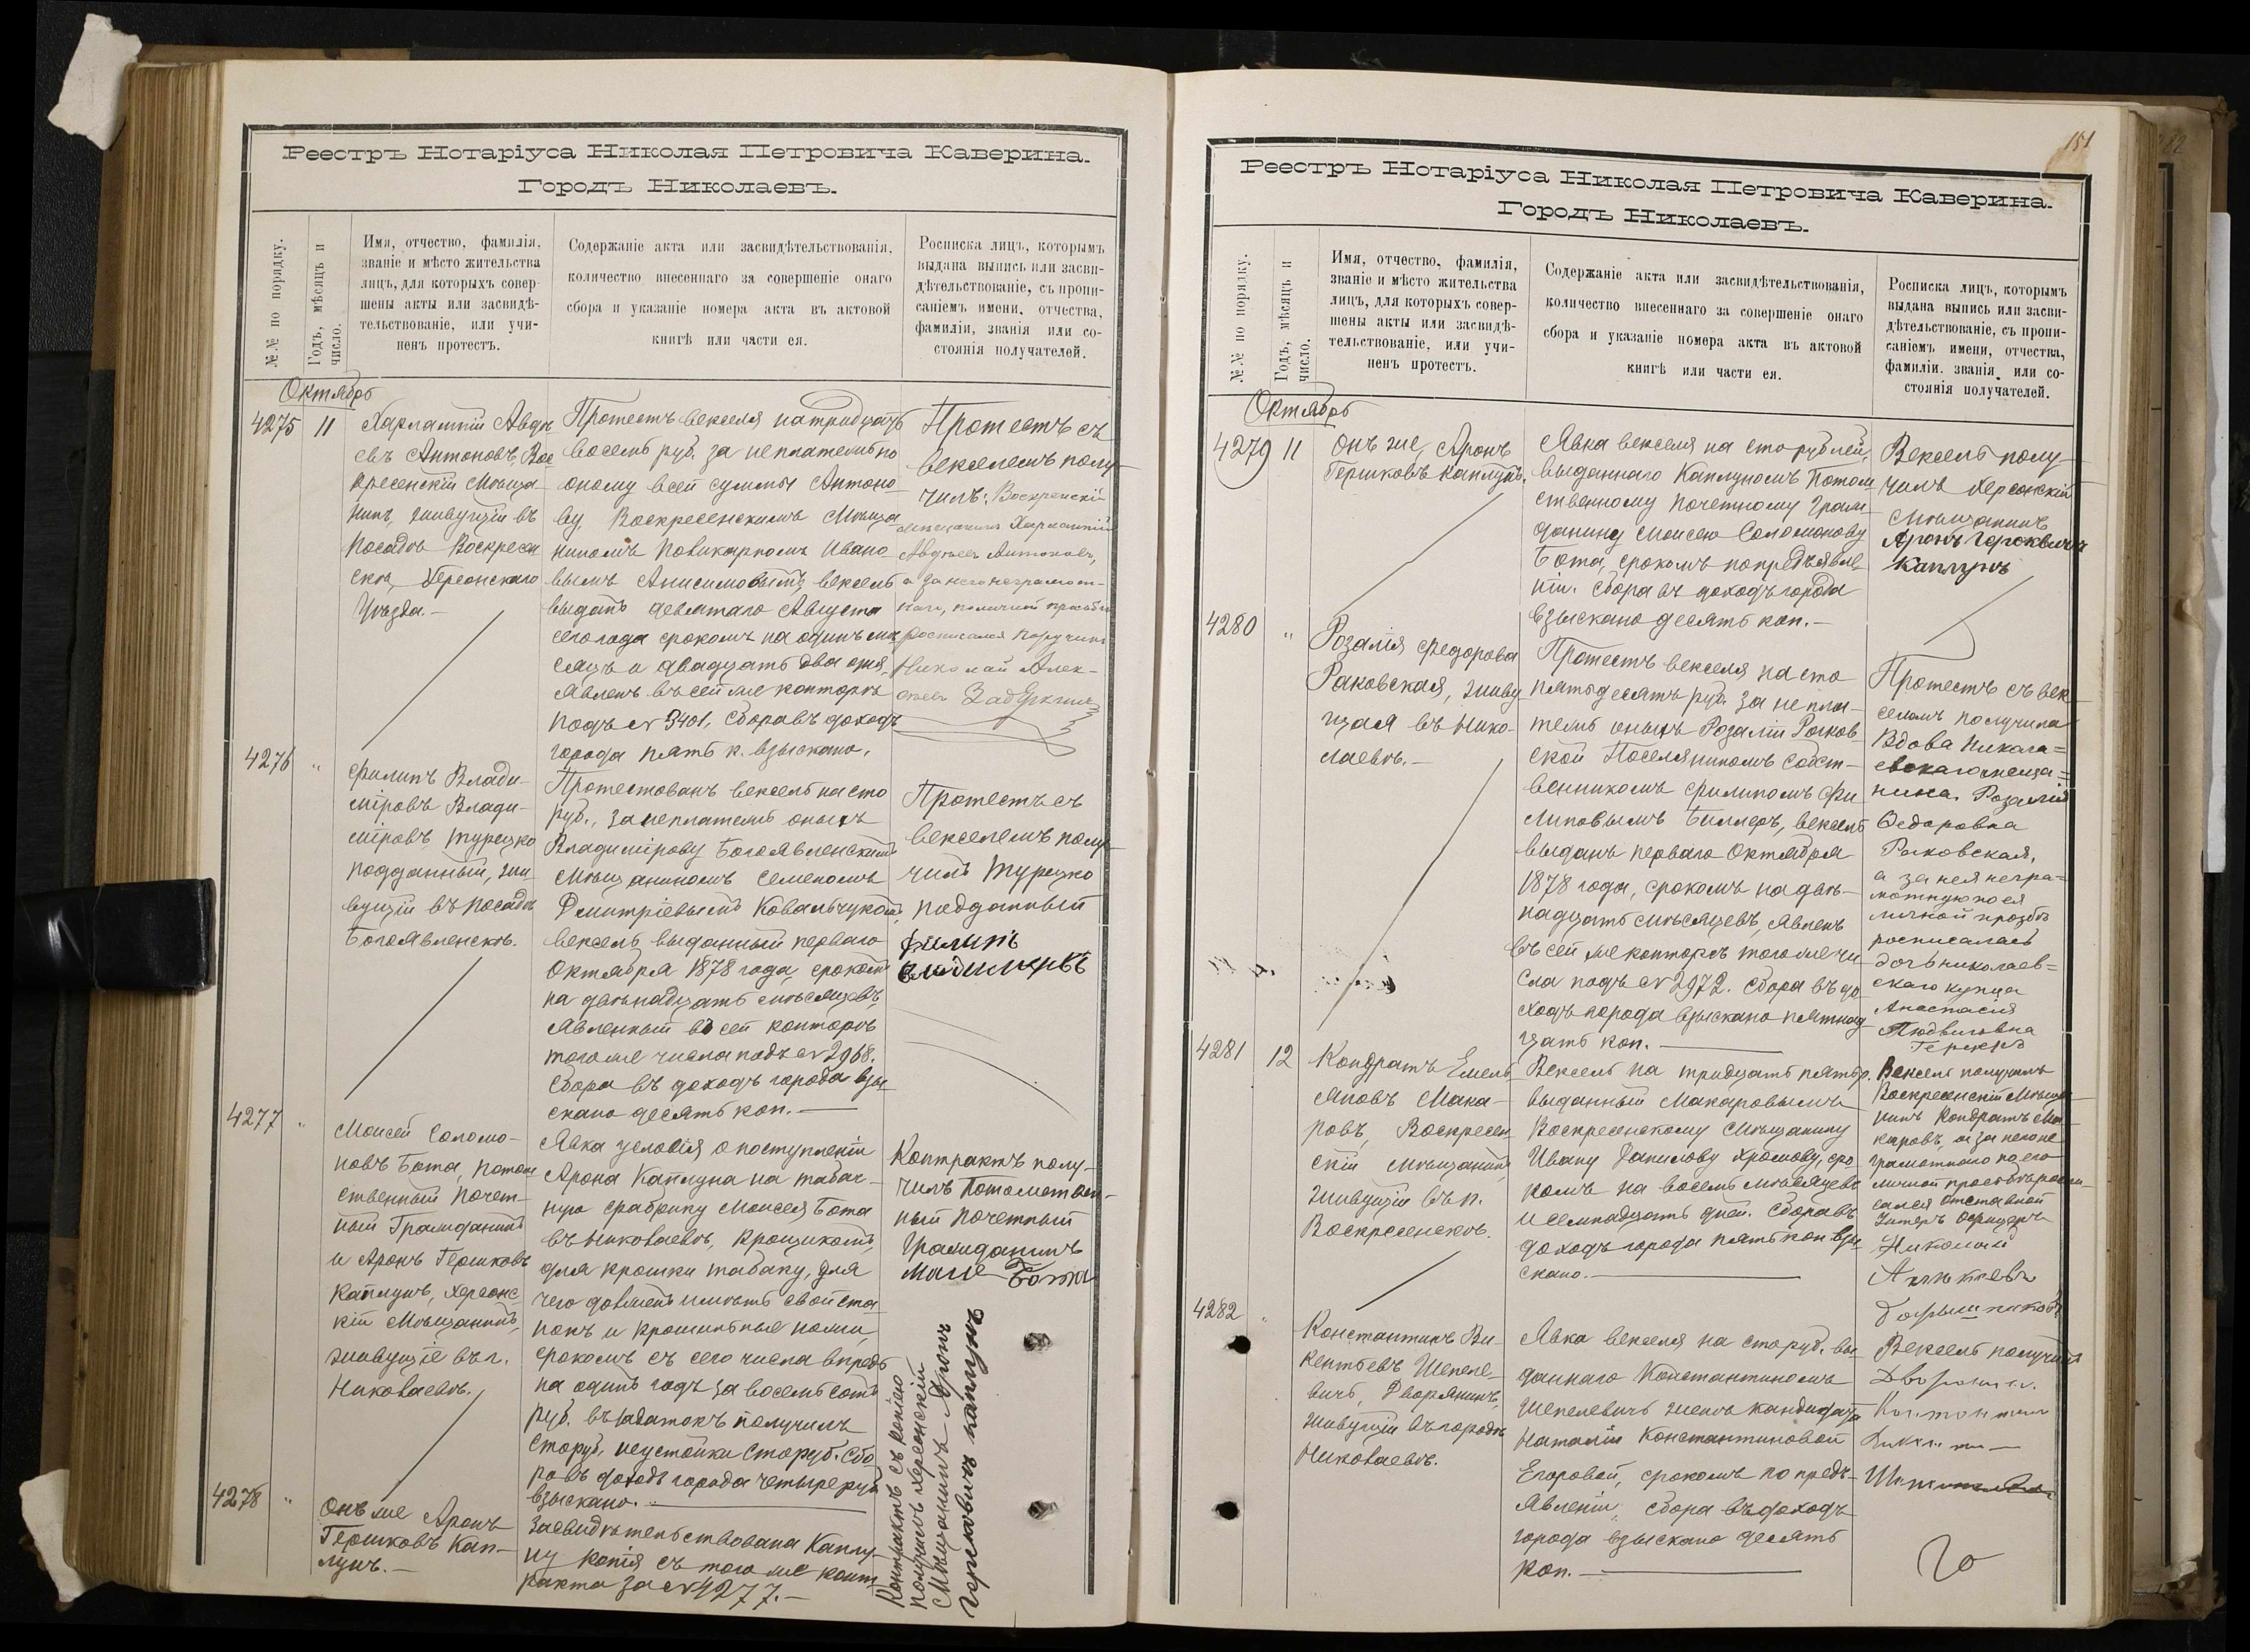 Реестръ Нотаріуса Николая Петровича Каверина.
Городъ Николаевъ.
№№ по порядку.
Годъ, мѣсяцъ и
число.
Имя, отчество, фамилія,
званіе и мѣсто жительства
лицъ, для которыхъ совер-
шены акты или засвидѣ-
тельствованіе, или учи-
ненъ протестъ.
Содержаніе акта или засвидѣтельствованія,
количество внесеннаго за совершеніе онаго
сбора и указаніе номера акта въ актовой
книгѣ или части ея.
Росписка лицъ, которымъ
выдана выпись или засви-
дѣтельствованіе, съ пропи-
саніемъ имени, отчества,
фамиліи, званія или со-
стоянія получателей.
Октябрь
4275 11
Харлампій Авдѣ
евъ Антоновъ, Вос
кресенскій Мѣща
нинъ, живущій въ
посадѣ Воскресен
скѣ, Херсонскаго
Уѣзда.—
Протестъ векселя на тридцать
восемь руб. за неплатежъ по
оному всей суммы Антоно-
ву Воскресенскимъ Мѣща
ниномъ Ивано
вымъ Анисимовымъ, вексель
выданъ девятаго Августа
сего года срокомъ на одинъ мѣ
сяцъ и двадцать два дня,
явленъ въ сей же конторѣ
подъ № 3401. Сбора въ доходъ
города пять к. взыскано.
Протестъ съ
векселемъ полу-
чилъ: Воскресенскій
мѣщанинъ Харлампій
Авдѣевъ Антоновъ,
а за него неграмот-
наго, по личной просьбѣ
росписался Поручикъ
Николай Алек-
4276 "
Филипъ Влади-
міровъ Влади-
міровъ, турецко
подданный, жи-
вущій въ посадѣ
Богоявленскѣ.
Протестованъ вексель на сто
руб., за неплатежъ оныхъ
Владимірову Богоявленскимъ
Мѣщаниномъ Семеномъ
Дмитріевымъ Ковальчукомъ,
вексель, выданный перваго
Октября 1878 года, срокомъ
на двѣнадцать мѣсяцевъ,
явленный въ сей конторѣ
того же числа подъ № 2968.
Сбора въ доходъ города взы
скано десять коп.—
Протестъ съ
векселемъ полу-
чилъ турецко
подданный
филипъ
владимеровъ
4277 "
Моисей Соломо-
новъ Бота, потом
ственный почет-
ный Гражданинъ
и Аронъ Гершковъ
Каплунъ, Херсонс-
кій Мѣщанинъ,
живущіе въ г.
Николаевѣ.
Явка условія о поступленіи
Арона Каплуна на табач-
ную фабрику Моисея Бота
въ Николаевѣ, Крошикомъ,
для крошки табаку, для
чего долженъ имѣть свой ста
нокъ и крошильные ножи,
срокомъ съ сего числа впредь
на одинъ годъ за восемь сотъ
руб. въ задатокъ получилъ
сто руб. неустойки сто руб. Сбо
ра въ доходъ города четыре руб
взыскано.—
Контрактъ полу-
чилъ Потомствен-
ный почетный
Гражданинъ
Бота
4278 "
Онъ же Аронъ
Гершковъ Кап-
лунъ.—
Засвидѣтельствована Каплу-
ну копія съ того же конт
ракта за № 4277.—
Контрактъ съ копіею
получилъ Херсонскій
Мѣщанинъ Аронъ
Герсковичъ каплунъ
151
Реестръ Нотаріуса Николая Петровича Каверина.
Городъ Николаевъ.
№№ по порядку.
Годъ, мѣсяцъ и
число.
Имя, отчество, фамилія,
званіе и мѣсто жительства
лицъ, для которыхъ совер-
шены акты или засвидѣ-
тельствованіе, или учи-
ненъ протестъ.
Содержаніе акта или засвидѣтельствованія,
количество внесеннаго за совершеніе онаго
сбора и указаніе номера акта въ актовой
книгѣ или части ея.
Росписка лицъ, которымъ
выдана выпись или засви-
дѣтельствованіе, съ пропи-
саніемъ имени, отчества,
фамиліи. званія или со-
стоянія получателей.
Октябрь
4279 11
Онъ же, Аронъ
Гершковъ Каплунъ.
Явка векселя на сто рублей,
выданнаго Каплуномъ Потом
ственному почетному Граж
данину Моисею Соломонову
Бота, срокомъ по предъявле
ніи. Сбора въ доходъ города
взыскано десять коп.—
Вексель полу-
чилъ Херсонскій
Мѣщанинъ
Аронъ Герсковичъ
Каплунъ
4280 "
Розалія Федорова
Раковская, живу
щая въ Нико-
лаевѣ.—
Протестъ векселя на сто
пятьдесятъ руб. за непла-
тежъ оныхъ Розаліи Раков-
ской Поселяниномъ собст-
венникомъ Филипомъ Фи
липовымъ Биллеръ, вексель
выданъ перваго Октября
1878 года, срокомъ на двѣ-
надцать мѣсяцевъ, явленъ
въ сей же конторѣ того же чи
сла подъ № 2972. Сбора въ до
ходъ города взыскано пятнад
цать коп.—
Протестъ съ век
селемъ получила
Вдова Никала=
евскаго меща=
нина Розалія
Федоровна
Раковская,
а за нея негра=
мотную по ея
личной прозьбѣ
росписалась
дочь николаев=
скаго купца
Анастасія
Людвиговна
4281 12
Кондратъ Емель
яновъ Мака-
ровъ, Воскресен
скій мѣщанинъ
живущій въ п.
Воскресенскѣ.
Вексель на тридцать пять р.
выданный Макаровымъ
Воскресенскому Мѣщанину
Ивану Данилову Хромову, сро
комъ на восемь мѣсяцевъ
и семнадцать дней. Сбора въ
доходъ города пять коп взы
скано.—
Вексель получилъ
Воскресенскій Мѣща
нинъ Кондратъ Ма-
каровъ, а за него не
грамотнаго по его
личной просьбѣ роспи-
сался отставной
Унтеръ Офицеръ
Николай
4282 "
Константинъ Ви-
кентьевъ Шепеле-
вичъ, Дворянинъ,
живущій въ городѣ
Николаевѣ.
Явка векселя на сто руб. вы-
даннаго Константиномъ
Шепелевичъ женѣ кандидата
Наталіи Константиновой
Егоровой, срокомъ по предъ-
явленіи, сбора въ доходъ
города взыскано десять
коп.—
Вексель получилъ